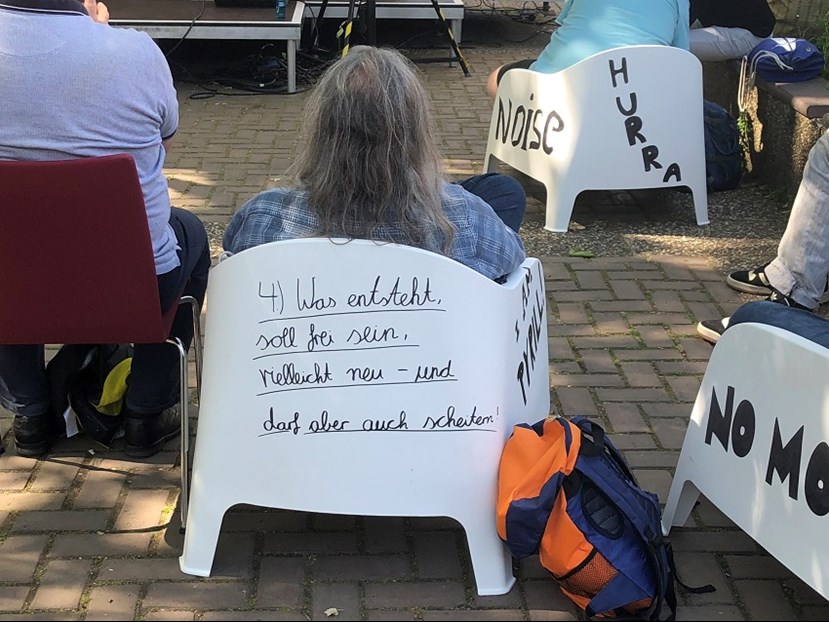 NOISE
HURRA
4) Was entsteht,
soll frei sein,
vielleicht neu – und
darf aber auch scheitern!
PYRILL
NO MO